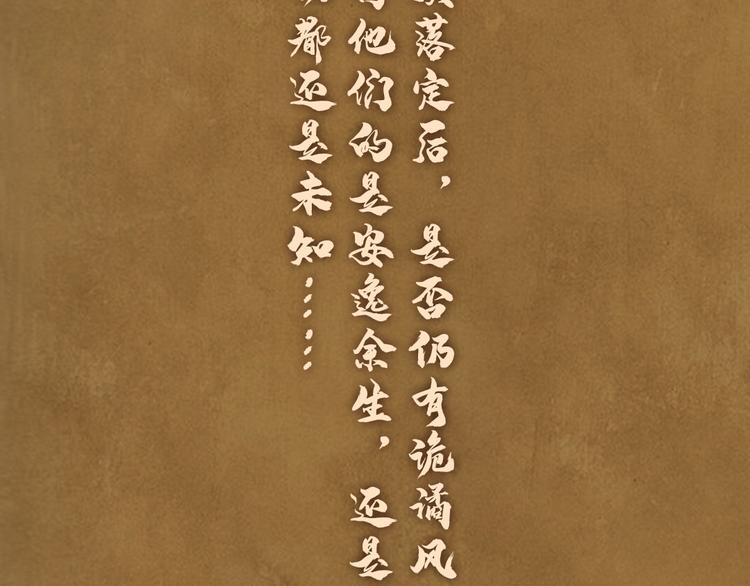 落定后，是否仍有诡谲风
他们的是安逸余生，还是
都还是未知……